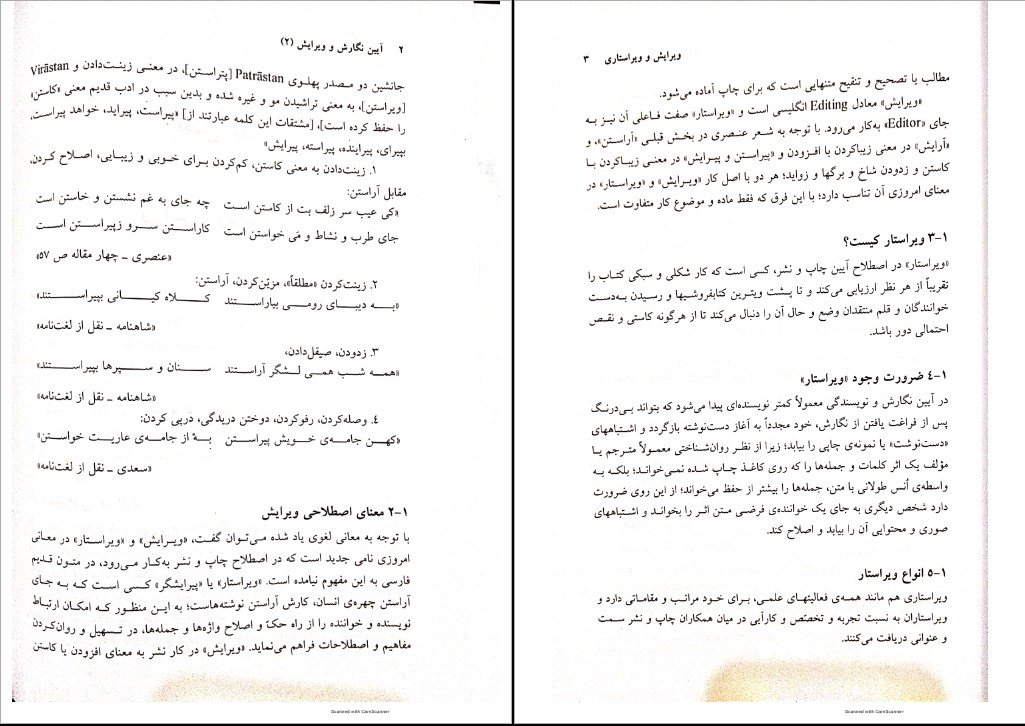 ۲ آیین نگارش و ویرایش (۲)
جانشین دو مـصدر پهلـوی Patrāstan [پتراسـتن]، در معنـی زینـت‌دادن و Virāstan
[ویراستن]، به معنی تراشیدن مو و غیره شده و بدین سبب در ادب قدیم معنی «کاستن»
را حفظ کرده است]، [مشتقات این کلمه عبارتند از] «پیراست، پیراید، خواهد پیراست،
بپیرای، پیراینده، پیراسته، پیرایش»
۱. زینت‌دادن به معنی کاستن، کم‌کردن بـرای خـوبی و زیبـایی، اصـلاح کـردن،
مقابل آراستن:
«کی عیب سر زلف بت از کاستن است چه جای به غم نشستن و خاستن است
جای طرب و نشاط و می خواستن است کاراسـتن سـرو زپیراسـتن اسـت
«عنصری ـ چهار مقاله ص ۵۷»
۲. زینت‌کردن «مطلقاً»، مزیّن‌کردن، آراستن:
«بـه دیبـای رومـی بیاراسـتند کـلاه کیـانی بپیراسـتند»
«شاهنامه ـ نقل از لغت‌نامه»
۳. زدودن، صیقل‌دادن،
«همـه شـب همـی لـشگر آراستند سـنان و سـپرها بپیراسـتند»
«شاهنامه ـ نقل از لغت‌نامه»
٤. وصله‌کردن، رفوکردن، دوختن دریدگی، درپی کردن:
«کهـن جامـه‌ی خـویش پیراسـتن بـهْ از جامـه‌ی عاریـت خواسـتن»
«سعدی ـ نقل از لغت‌نامه»
۱-۲ معنای اصطلاحی ویرایش
با توجه به معانی لغوی یاد شده مـی‌توان گفـت، «ویـرایش» و «ویراسـتار» در معـانی
امروزی نامی جدید است که در اصطلاح چاپ و نشر به‌کـار مـی‌رود، در متـون قـدیم
فارسی به این مفهوم نیامده است. «ویراستار» یا «پیرایشگر» کـسی اسـت کـه بـه جـای
آراستن چهره‌ی انسان، کارش آراستن نوشته‌هاست؛ به ایـن منظـور کـه امکـان ارتبـاط
نویسنده و خواننده را از راه حکّ و اصلاح واژه‌ها و جمله‌ها، در تـسهیل و روان‌کـردن
مفاهیم و اصطلاحات فراهم می‌نماید. «ویرایش» در کار نشر به معنای افزودن یا کاستن
ویرایش و ویراستاری ۳
مطالب یا تصحیح و تنقیح متنهایی است که برای چاپ آماده می‌شود.
«ویرایش» معادل Editing انگلیسی است و «ویراستار» صفت فـاعلی آن نیـز بـه
جای «Editor» به‌کار می‌رود. با توجه به شـعر عنـصری در بخـش قبلـی «آراسـتن»، و
«آرایش» در معنی زیباکردن با افـزودن و «پیراسـتن و پیـرایش» در معنـی زیبـاکردن بـا
کاستن و زدودن شاخ و برگها و زواید؛ هر دو با اصل کار «ویـرایش» و «ویراسـتار» در
معنای امروزی آن تناسب دارد؛ با این فرق که فقط ماده و موضوع کار متفاوت است.
۱-۳ ویراستار کیست؟
«ویراستار» در اصطلاح آیین چاپ و نشر، کسی است که کار شکلی و سبکی کتـاب را
تقریباً از هر نظر ارزیابی می‌کند و تا پـشت ویتـرین کتابفروشـیها و رسـیدن بـه‌دسـت
خوانندگان و قلم منتقدان وضع و حال آن را دنبال می‌کند تا از هرگونه کاستی و نقـص
احتمالی دور باشد.
۱-٤ ضرورت وجود «ویراستار»
در آیین نگارش و نویسندگی معمولاً کمتر نویسنده‌ای پیدا می‌شود که بتواند بـی‌درنـگ
پس از فراغت یافتن از نگارش، خود مجدداً به آغاز دست‌نوشته بازگردد و اشـتباههای
«دست‌نوشت» یا نمونه‌ی چاپی را بیابد؛ زیرا از نظـر روان‌شـناختی معمـولاً متـرجم یـا
مؤلف یک اثر کلمات و جمله‌ها را که روی کاغـذ چـاپ شـده نمـی‌خوانـد؛ بلکـه بـه
واسطه‌ی اُنس طولانی با متن، جمله‌ها را بیشتر از حفظ می‌خواند؛ از این روی ضـرورت
دارد شخص دیگری به جای یک خواننده‌ی فرضـی مـتن اثـر را بخوانـد و اشـتباههای
صوری و محتوایی آن را بیابد و اصلاح کند.
۱-۵ انواع ویراستار
ویراستاری هم مانند همه‌ی فعالیتهای علمـی، بـرای خـود مراتـب و مقامـاتی دارد و
ویراستاران به نسبت تجربه و تخصّص و کارآیی در میان همکاران چاپ و نشر سـمت
و عنوانی دریافت می‌کنند.
Scanned with CamScanner
Scanned with CamScanner